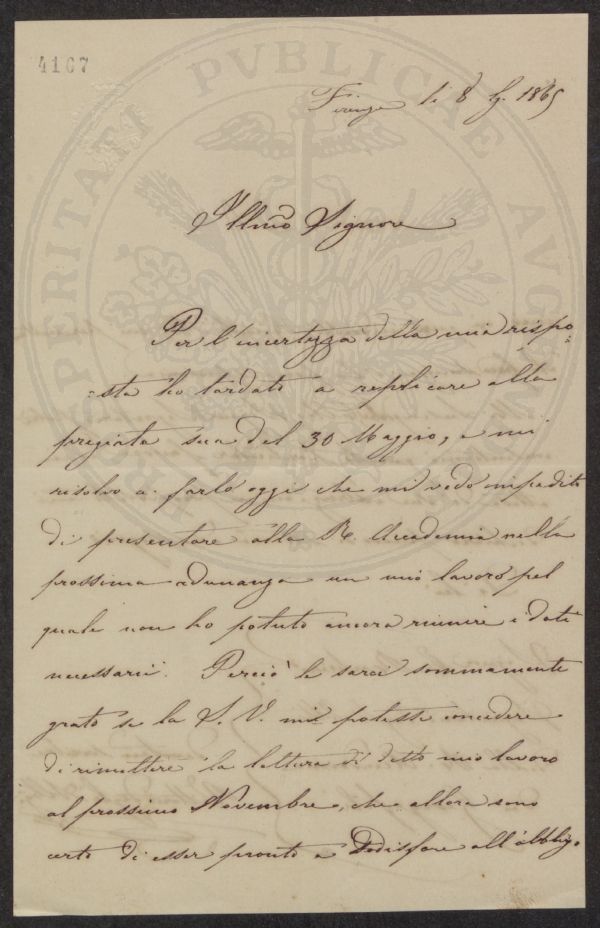 4167
PERITATI PVBLICAE AVG
Firenze li 8 G. 1865
Illmo Signore
Per l'incertezza della mia rispo=
=sta ho tardato a replicare alla
pregiata sua del 30 Maggio, e mi
risolvo a farlo oggi che mi vedo impedito
di presentare alla R. Accademia nella
prossima adunanza un mio lavoro pel
quale non ho potuto ancora riunire i dati
necessarii. Perciò le sarei sommamente
grato se la S. V. mi potesse concedere
di rimettere la lettura di detto mio lavoro
al prossimo Novembre, che allora sono
certo di esser pronto a sodisfare all'obbligo